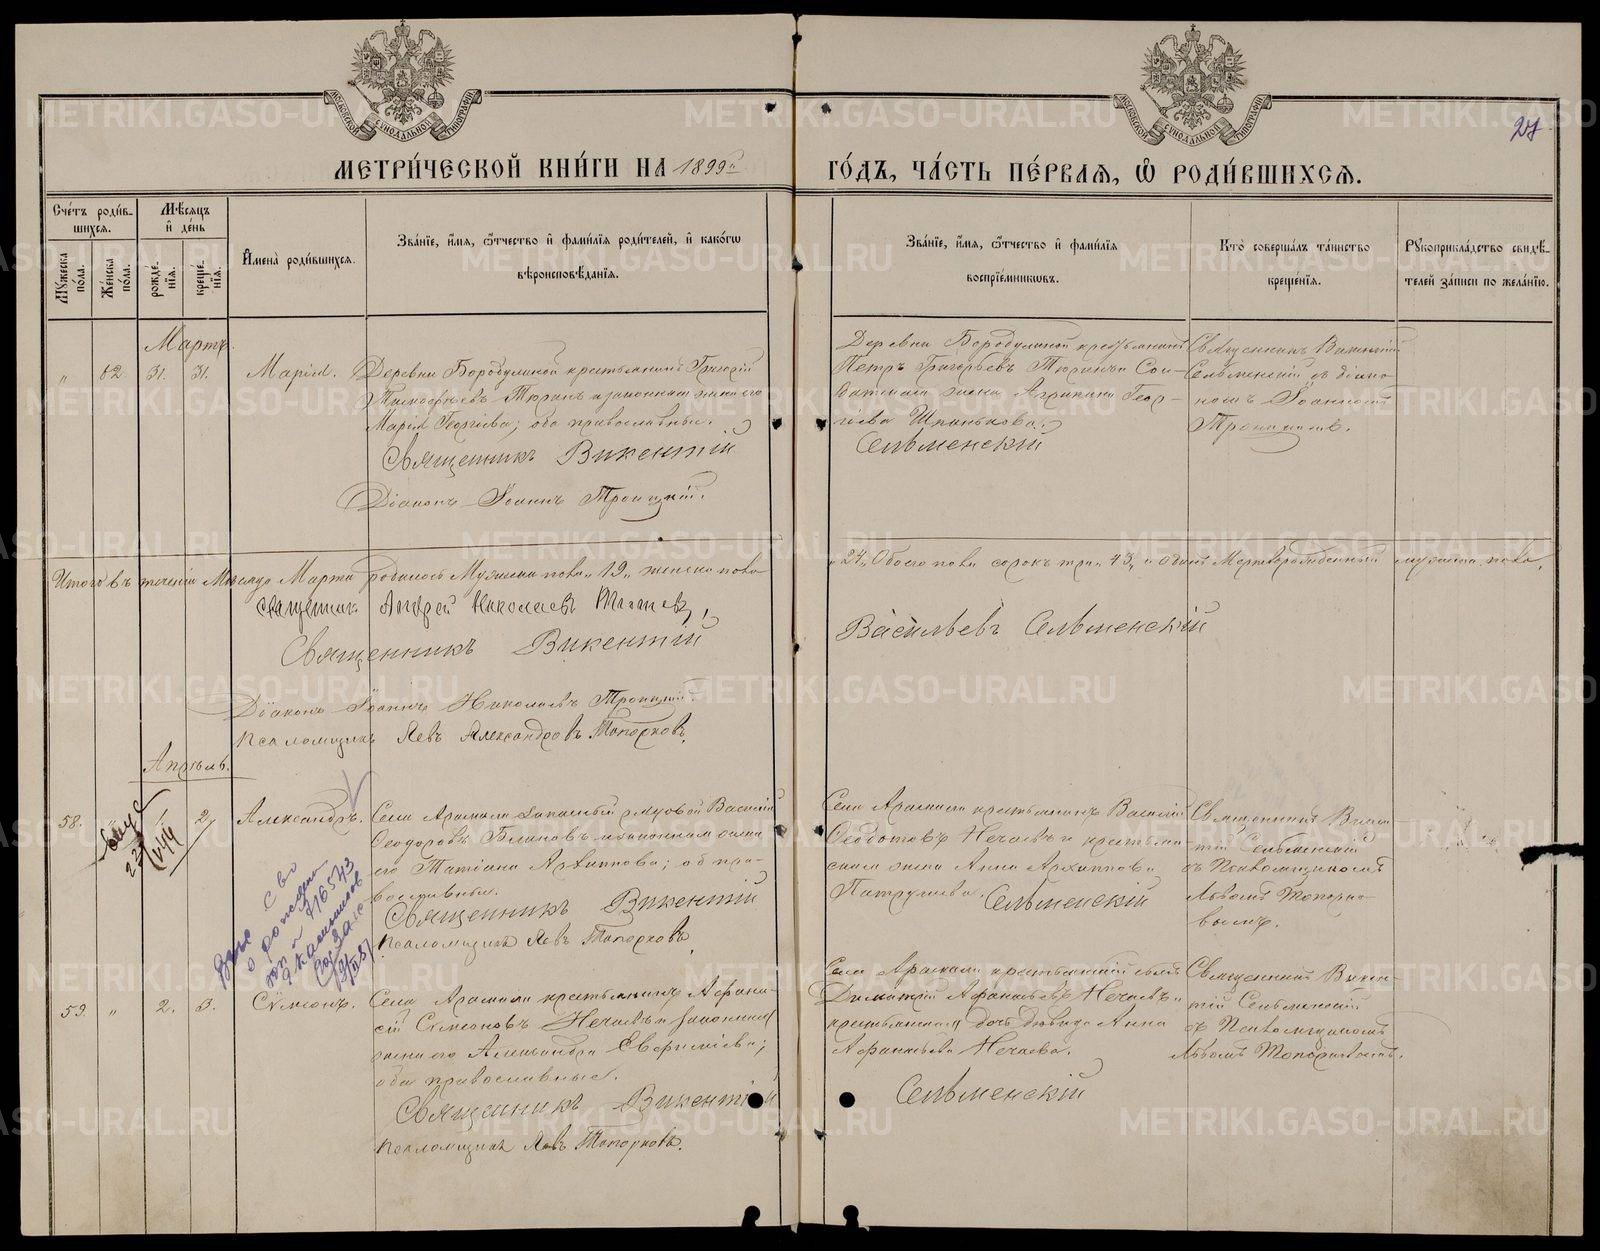 МОСКОВСКОЙ СѴНОДАЛЬНОЙ ТИПОГРАФІИ
МОСКОВСКОЙ СѴНОДАЛЬНОЙ ТИПОГРАФІИ
27
МЕТРИ́ЧЕСКОЙ КНИ́ГИ НА 1899й ГО́ДЪ, ЧА́СТЬ ПЕ́РВАЯ, Ѽ РОДИ́ВШИХСЯ.
Сче́тъ роди́в-
шихся.
Мѣ́сяцъ
и҆ де́нь
Му́жеска
по́ла.
Же́нска
по́ла.
рожде-
нїя.
креще-
нїя.
И҆мена̀ роди́вшихся.
Зва́нїе, и҆́мя, ѻ҆́тчество и҆ фами́лїя роди́телей, и҆ како́гѡ
вѣроисповѣ́данїя.
Зва́нїе, и҆́мя, ѻ҆́тчество и҆ фами́лїя
воспрїе́мникѡвъ.
Кто̀ соверша́лъ та́инство
креще́нїя.
Рꙋкоприкла́дство свидѣ́-
телей за́писи по жела́нїю.
Мартъ.
" 62 31. 31. Марія.
Деревни Бородулиной крестьянинъ Григорій
Тимофѣевъ Тюринъ и законная жена его
Марія Георгіева; оба православные.
Священникъ Викентій
Діаконъ Іоаннъ Троицкій.
Деревни Бородулиной крестьянинъ
Петръ Григорьевъ Тюринъ и Сол-
датская жена Агрипина Геор-
гіева
Сельменскій
Священникъ Викентій
Сельменскій съ діако-
номъ Іоанномъ
Троицкимъ.
Итого въ теченіи Мѣсяца Марта родилось Мужска пола "19" женска пола
"24" Обоего пола сорокъ три "43" и одинъ Мертворожденный мужска пола.
Священникъ Андрей Николаевъ
Священникъ Викентій
Васильевъ Сельменскій
Діаконъ Іоаннъ Николаевъ Троицкій.
Псаломщикъ Левъ Александровъ Топорковъ.
Апрѣль.
58. " 2. Александръ.
Села Арамили запасный рядовой Василій
Ѳеодоровъ и законная жена
его Татіана Архиппова; оба пра-
вославные.
Священникъ Викентій
Псаломщикъ Левъ Топорковъ
Села Арамили крестьянинъ Василій
Ѳедотовъ Нечаевъ и крестьян-
ская жена Анна Архиппова
Патрушева.
Сельменскій
Священникъ Викен-
тій Сельменскій
съ Псаломщикомъ
Львомъ Топорко-
вымъ.
о рождении
716543
59. " 2. 3. Сѵмеонъ.
Села Арамили крестьянинъ Аѳана-
сій Сѵмеоновъ Нечаевъ и законная
жена его Александра Евфиміева;
оба православные.
Священникъ Викентій
Псаломщикъ Левъ Топорковъ.
Села Арамили крестьянскій сынъ
Димитрій Аѳанасьевъ Нечаевъ и
крестьянская дочь дѣвица Анна
Аѳанасьева Нечаева.
Сельменскій
Священникъ Викен-
тій Сельменскій
съ Псаломщикомъ
Львомъ Топорковымъ.
METRIKI.GASO-URAL.RU